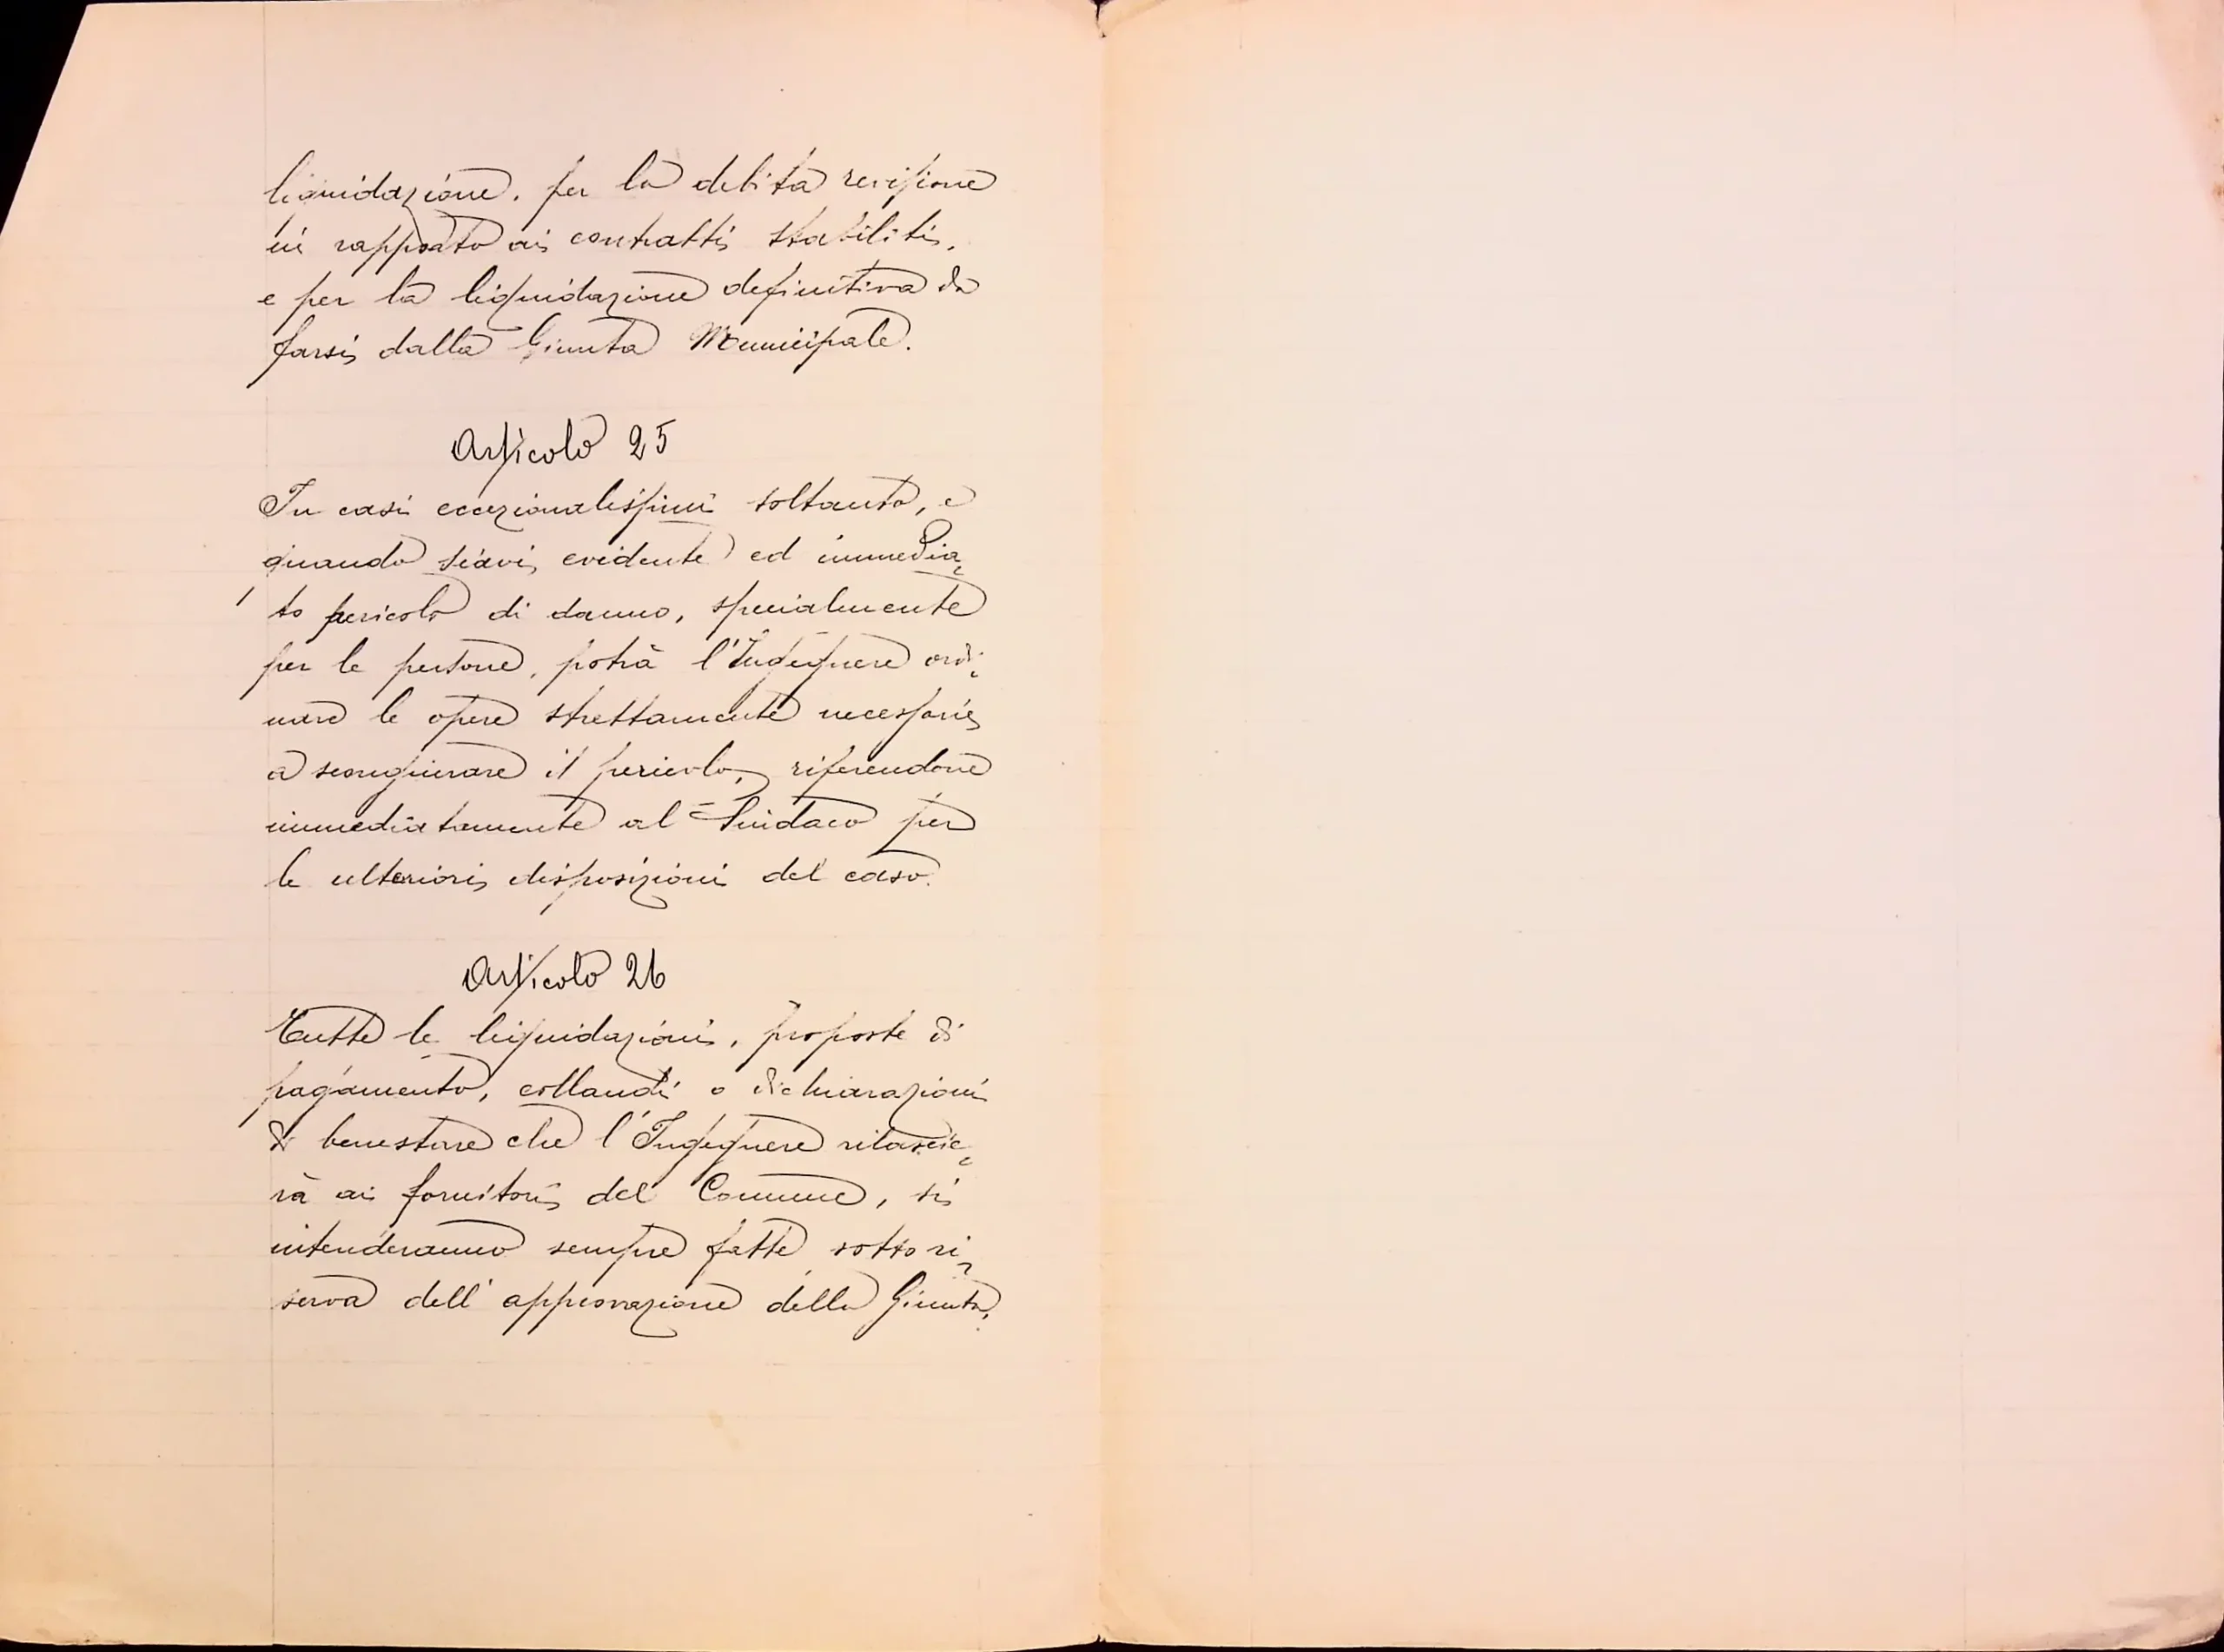 liquidazione, per la debita revisione
in rapporto ai contratti stabiliti,
e per la liquidazione definitiva da
farsi dalla Giunta Municipale.
Articolo 25
In casi eccezionalissimi soltanto, e
quando siavi evidente ed immedia-
to pericolo di danno, specialmente
per le persone, potrà l'Ingegnere ordi-
nare le opere strettamente necessarie
a scongiurare il pericolo, riferendone
immediatamente al Sindaco per
le ulteriori disposizioni del caso.
Articolo 26
Tutte le liquidazioni, proposte di
pagamento, collaudi o dichiarazioni
di benestare che l'Ingegnere rilascie-
rà ai fornitori del Comune, si
intenderanno sempre fatte sotto ri-
serva dell'approvazione della Giunta.